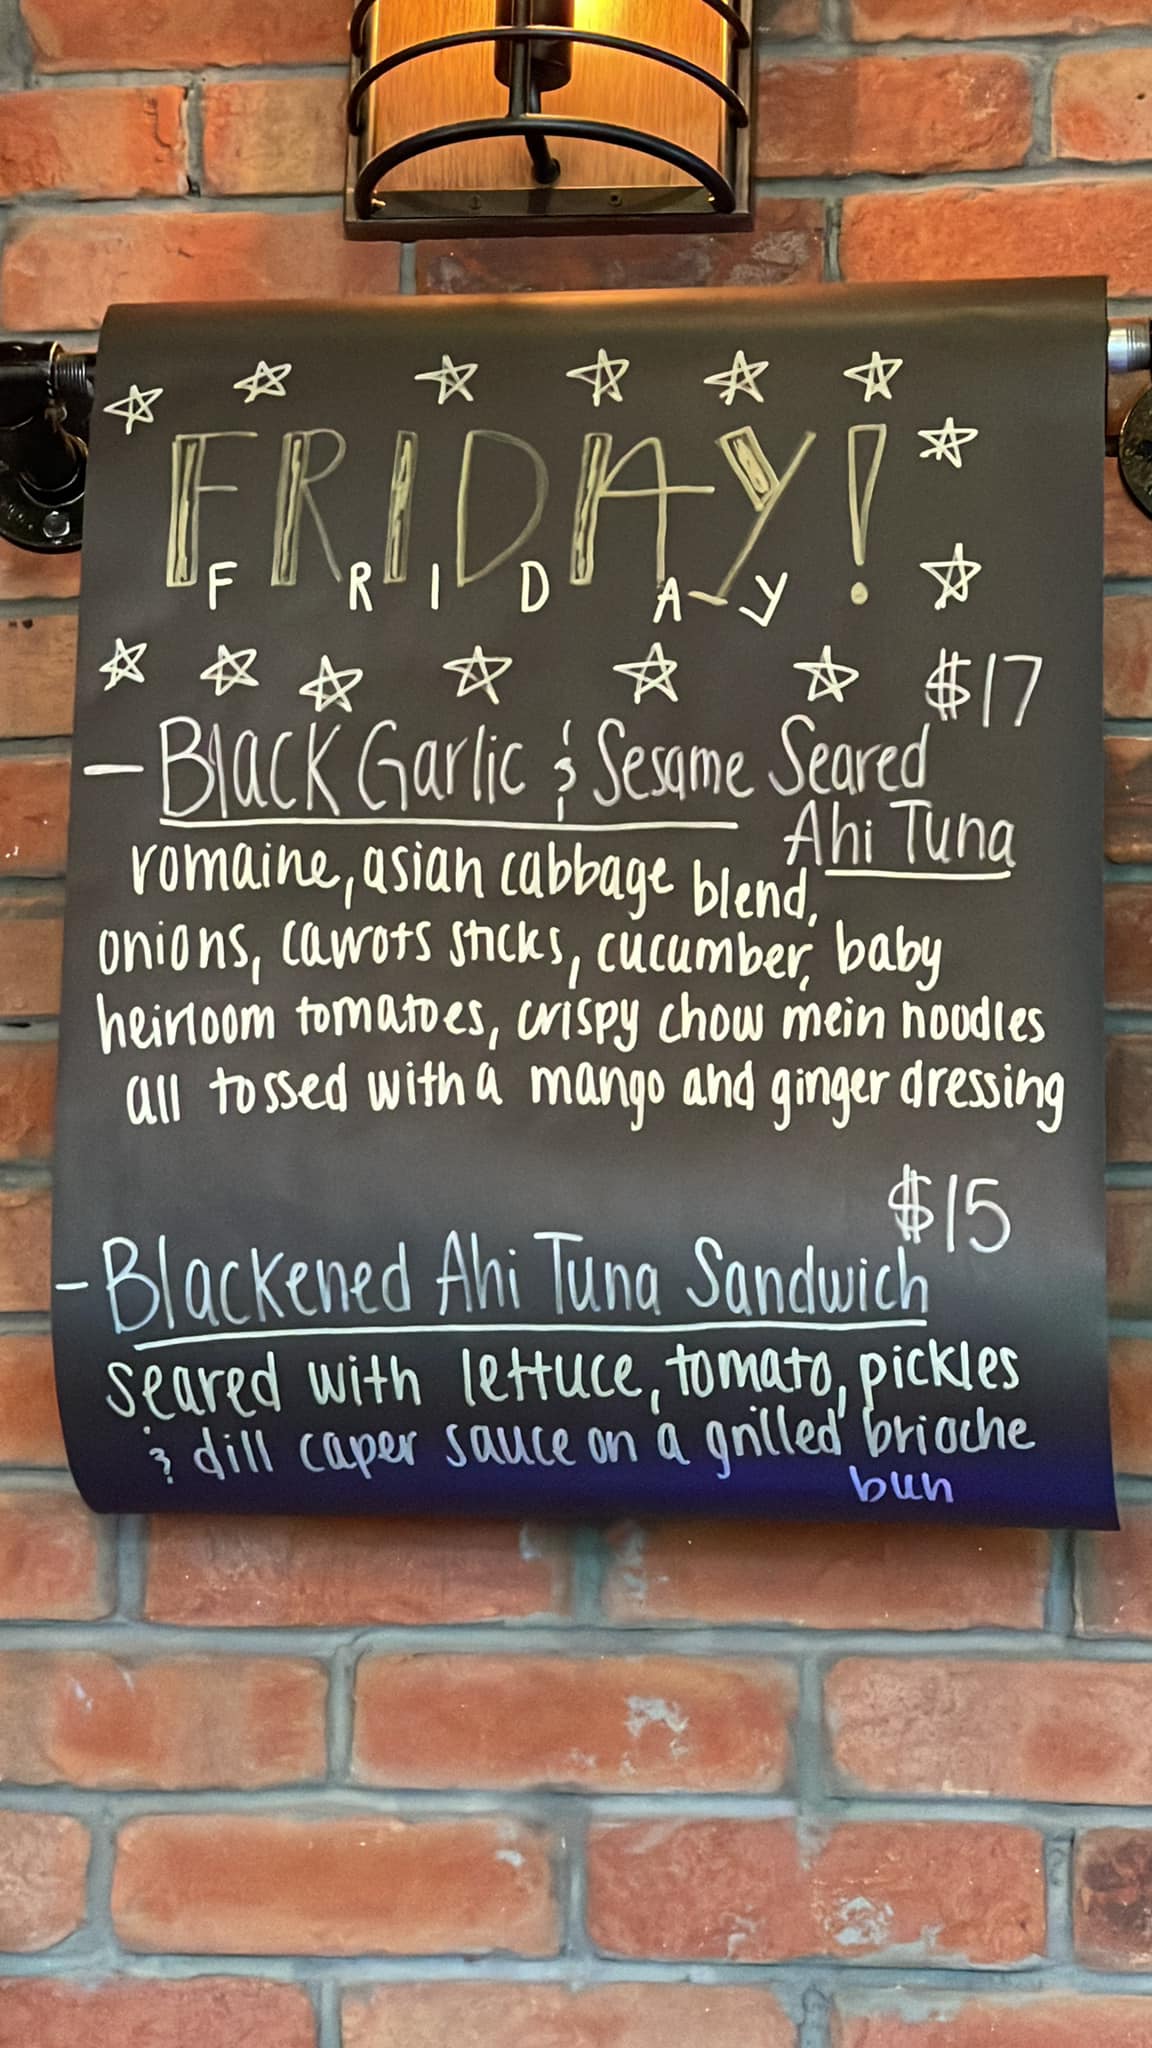 FRIDAY!
F R I D A Y
$17
- Black Garlic & Sesame Seared
Ahi Tuna
romaine, asian cabbage blend,
onions, carrots sticks, cucumber, baby
heirloom tomatoes, crispy chow mein noodles
all tossed with a mango and ginger dressing
$15
- Blackened Ahi Tuna Sandwich
seared with lettuce, tomato, pickles
& dill caper sauce on a grilled brioche
bun